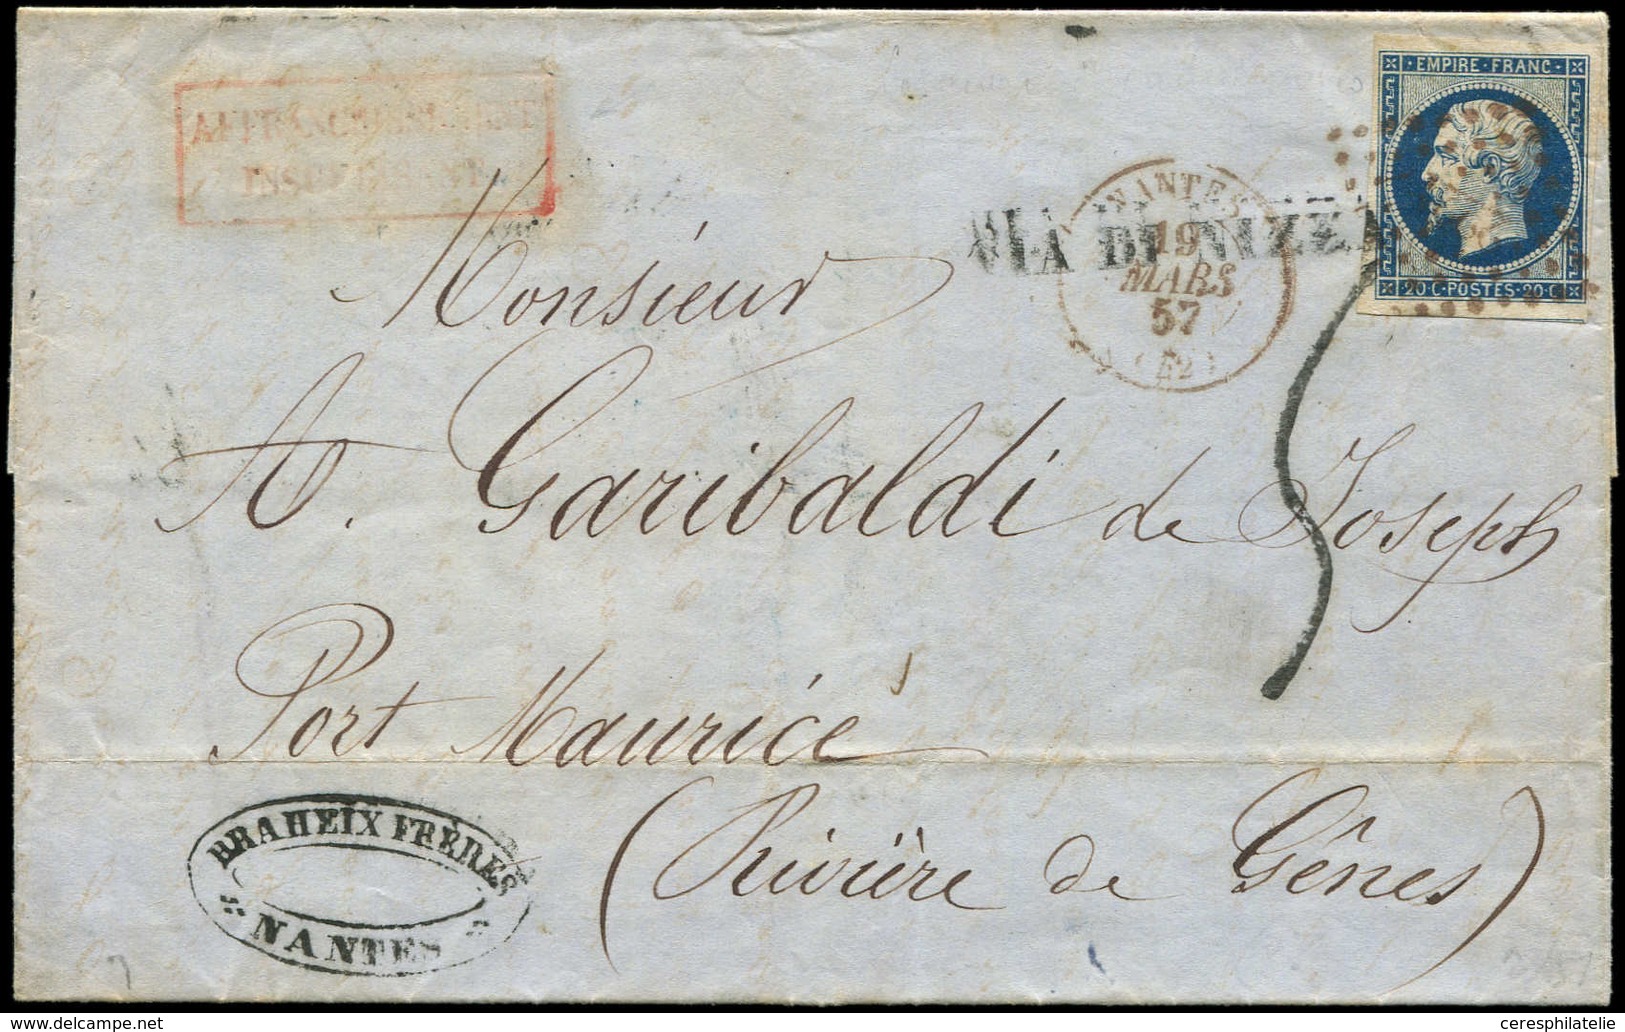 EMPIRE · FRANC ·
AFFRANCHISSEMENT
INSUFFISANT
NANTES
19
MARS
57
VIA DI NIZZA
20 · C · POSTES · 20 · C
Monsieur
A. Garibaldi de Joseph
Port Maurice
(Rivière de Gênes)
BRAHEIX FRÈRES
NANTES
ceresphilatelie
delcampe.net